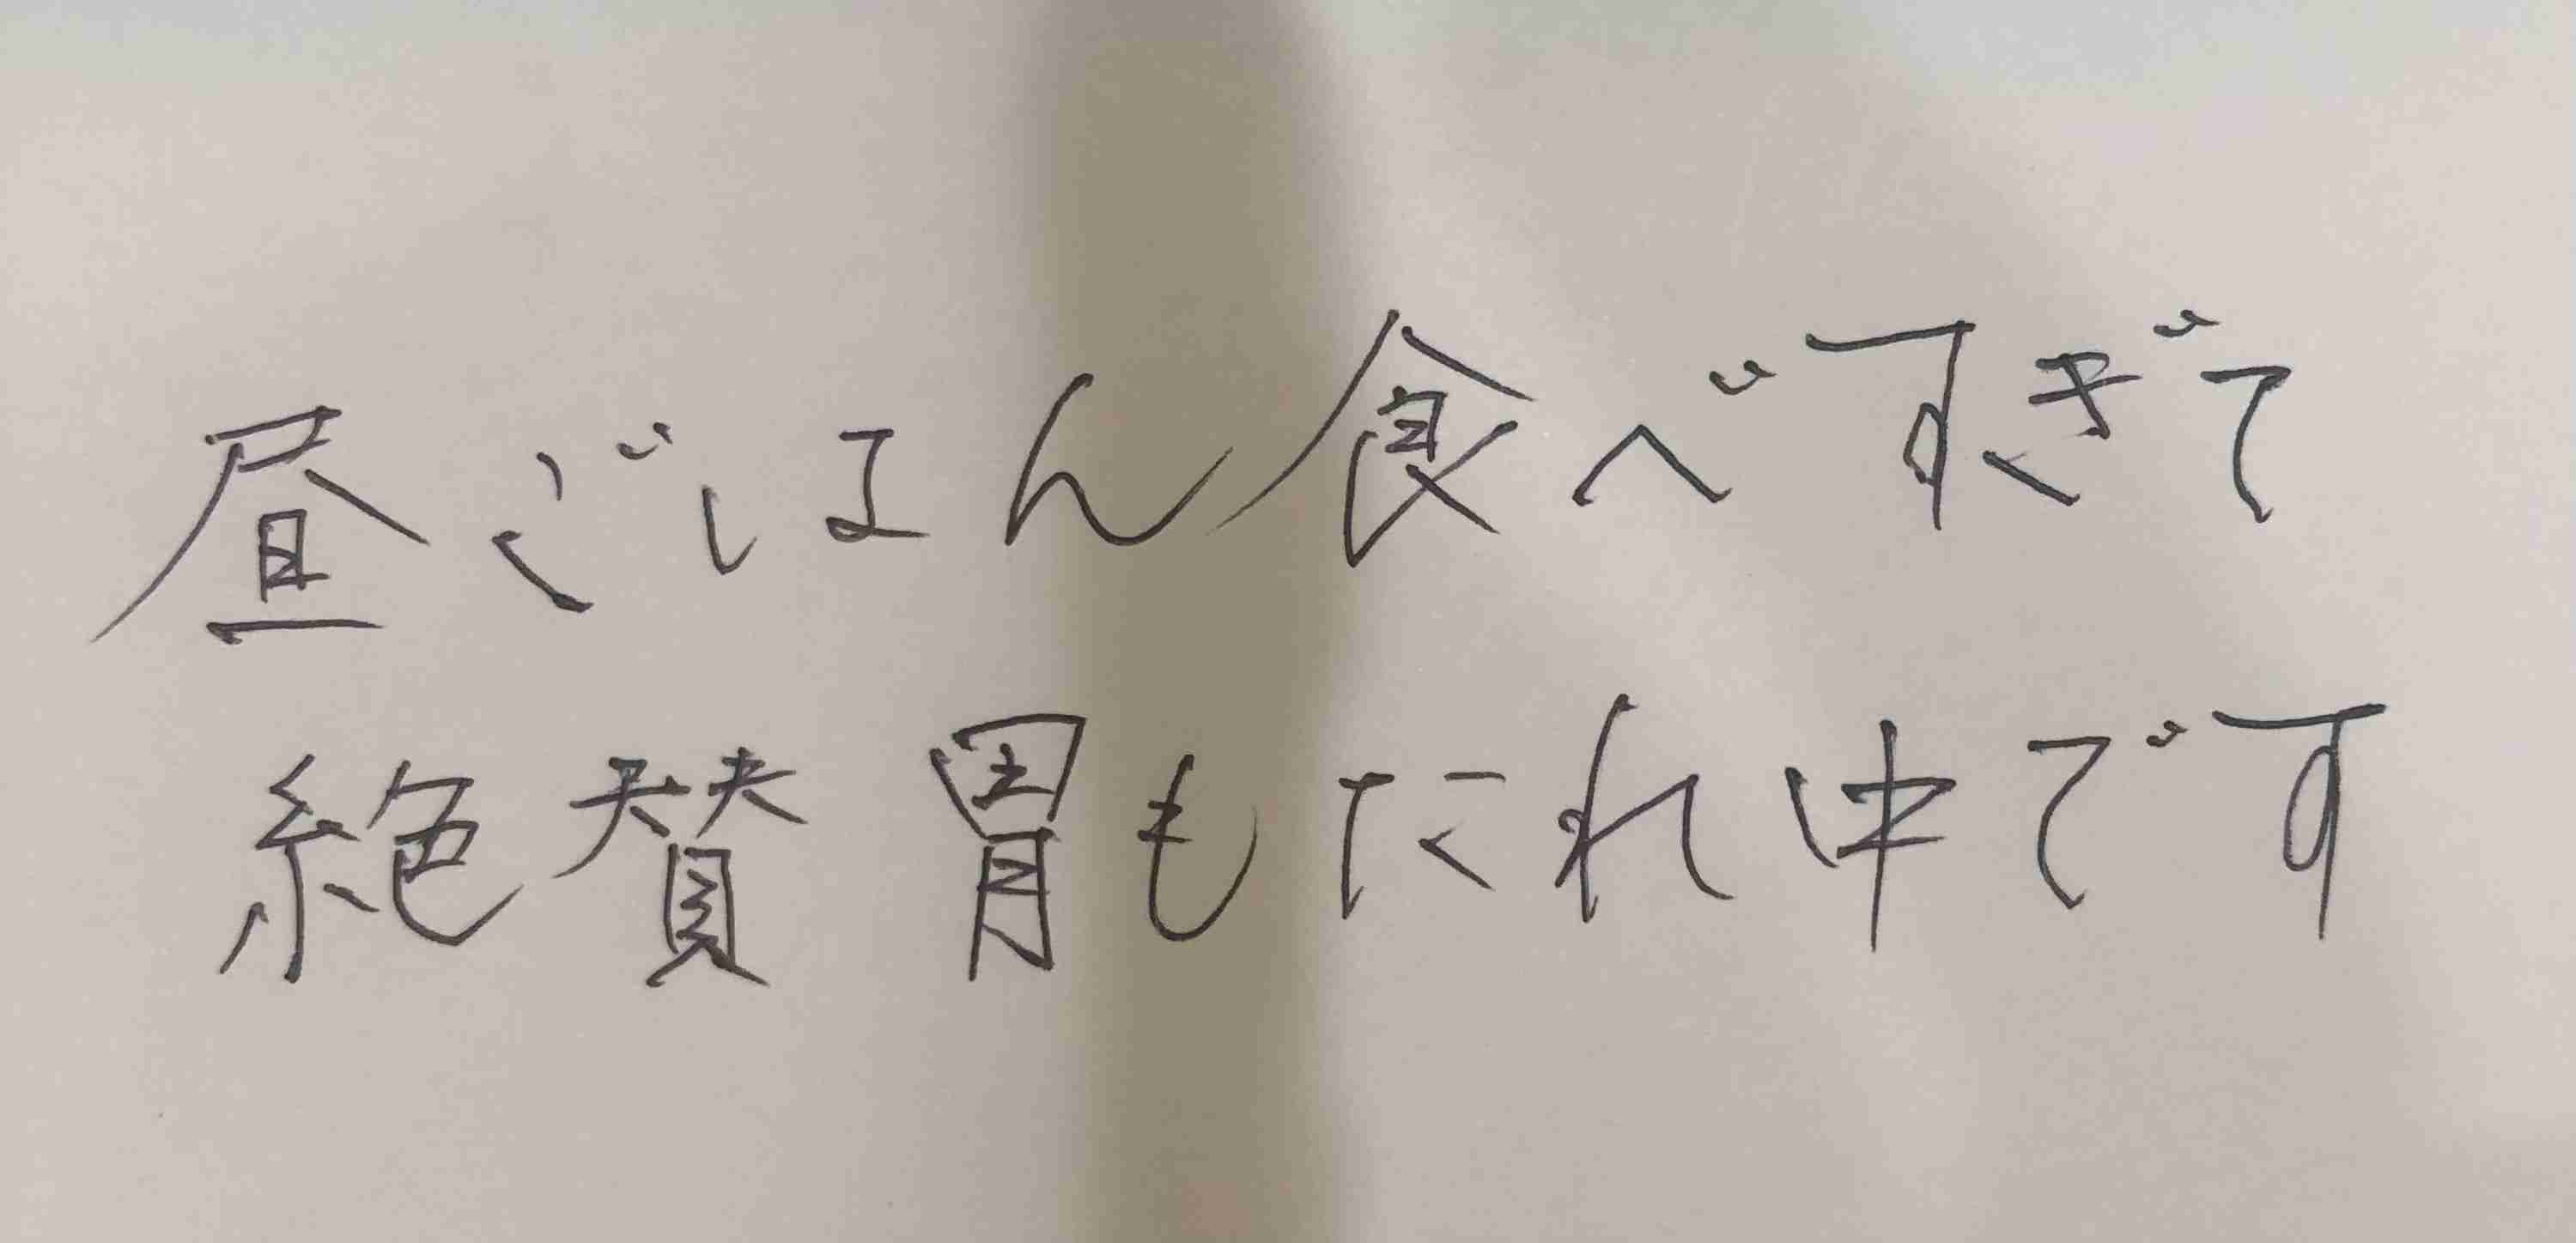 昼ごはん食べすぎて
絶賛胃もたれ中です